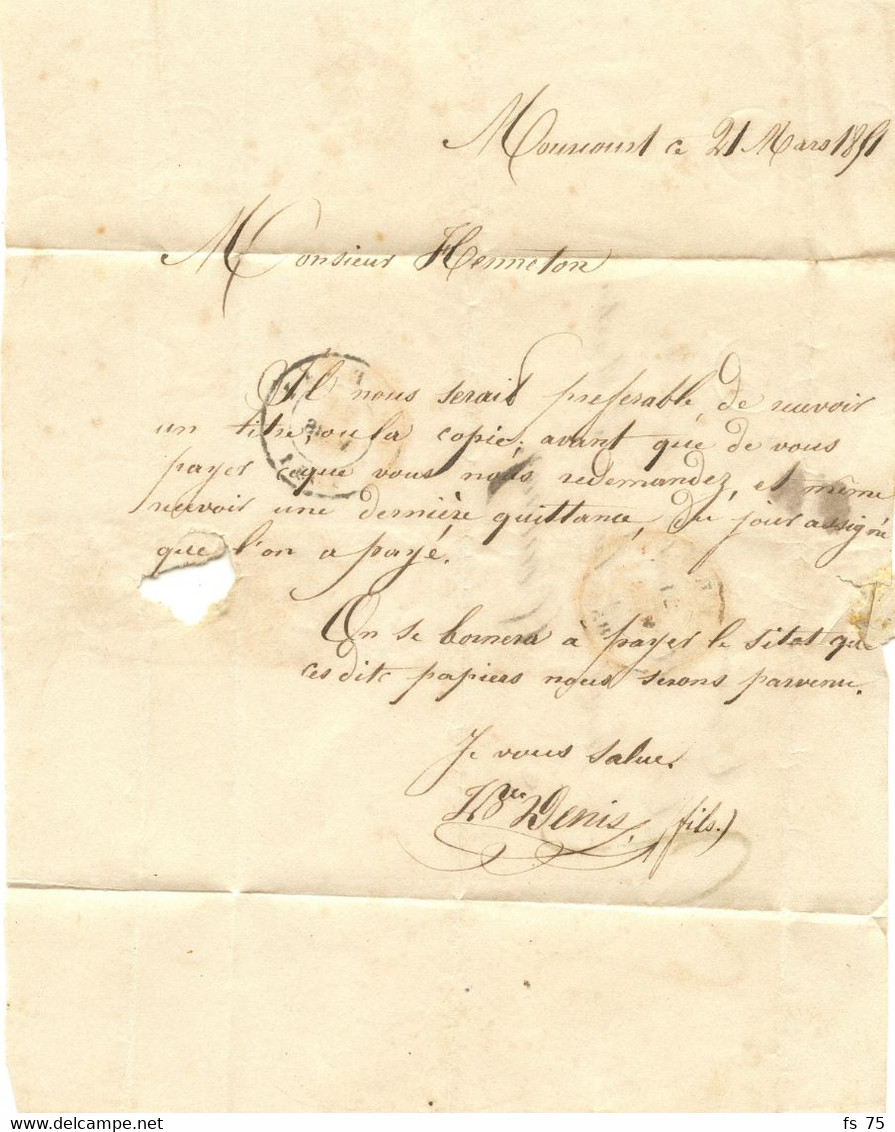 Mourcourt ce 21 Mars 1851
Monsieur Henneton
Il nous serait preferable, de recevoir
un titre, ou la copie; avant que de vous
payer ce que vous nous redemandez, et même
recevoir une dernière quittance, du jour assigné
que l'on a payé.
On se bornera a payer le sitot que
ces dits papiers nous serons parvenu.
Je vous salue.
Denis, (fils.)
fs 75